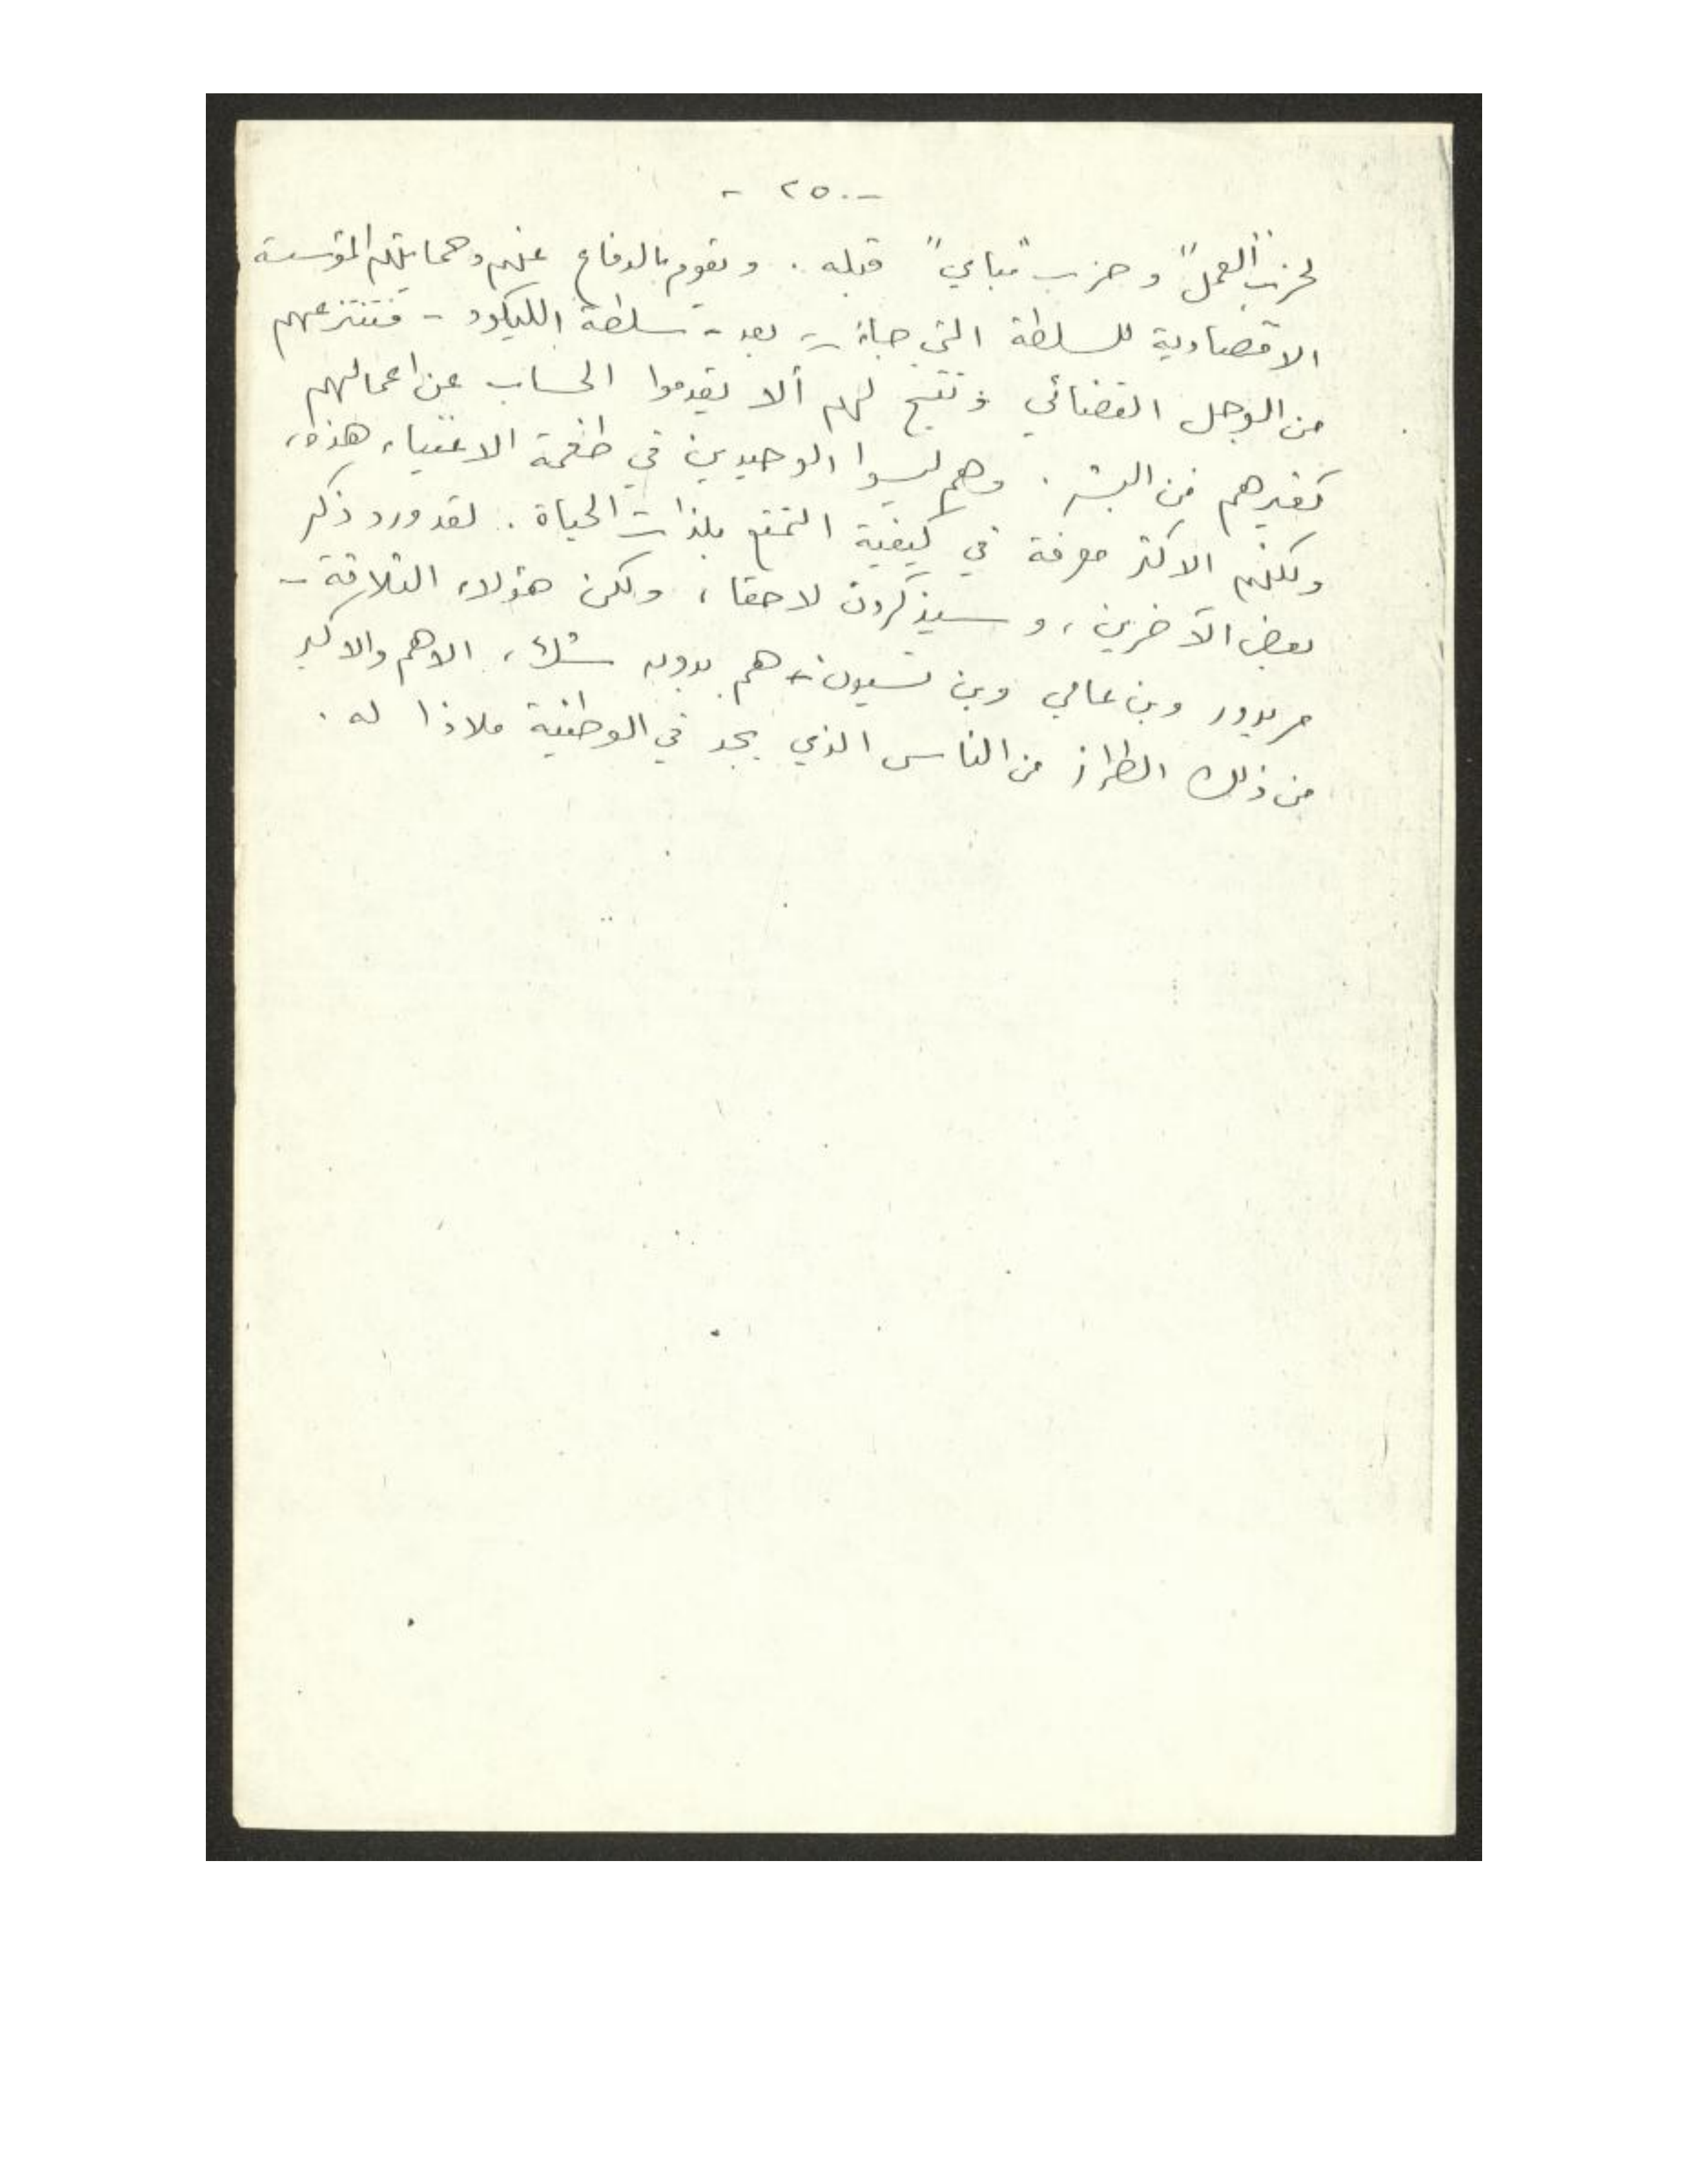 - ٢٥٠ -
لحزب "العمل" و حزب "مباي" قبله . و تقوم بالدفاع عنهم وحمايتهم المؤسسة
الاقتصادية للسلطة التي جاءت بعد - سلطة الليكود - فتنتزعهم
من الوحل القضائي وتتيح لهم ألا يقدموا الحساب عن اعمالهم
كغيرهم من البشر . وهم ليسوا الوحيدين في طغمة الاغنياء هذه،
ولكنهم الاكثر معرفة في كيفية التمتع بلذات الحياة . لقد ورد ذكر
بعض الآخرين ، و سيذكرون لاحقا ، ولكن هؤلاء الثلاثة -
مريدور وبن عامي وبن تسيون - هم بدون شك ، الاهم والاكبر
من ذلك الطراز من الناس الذي يجد في الوطنية ملاذا له .